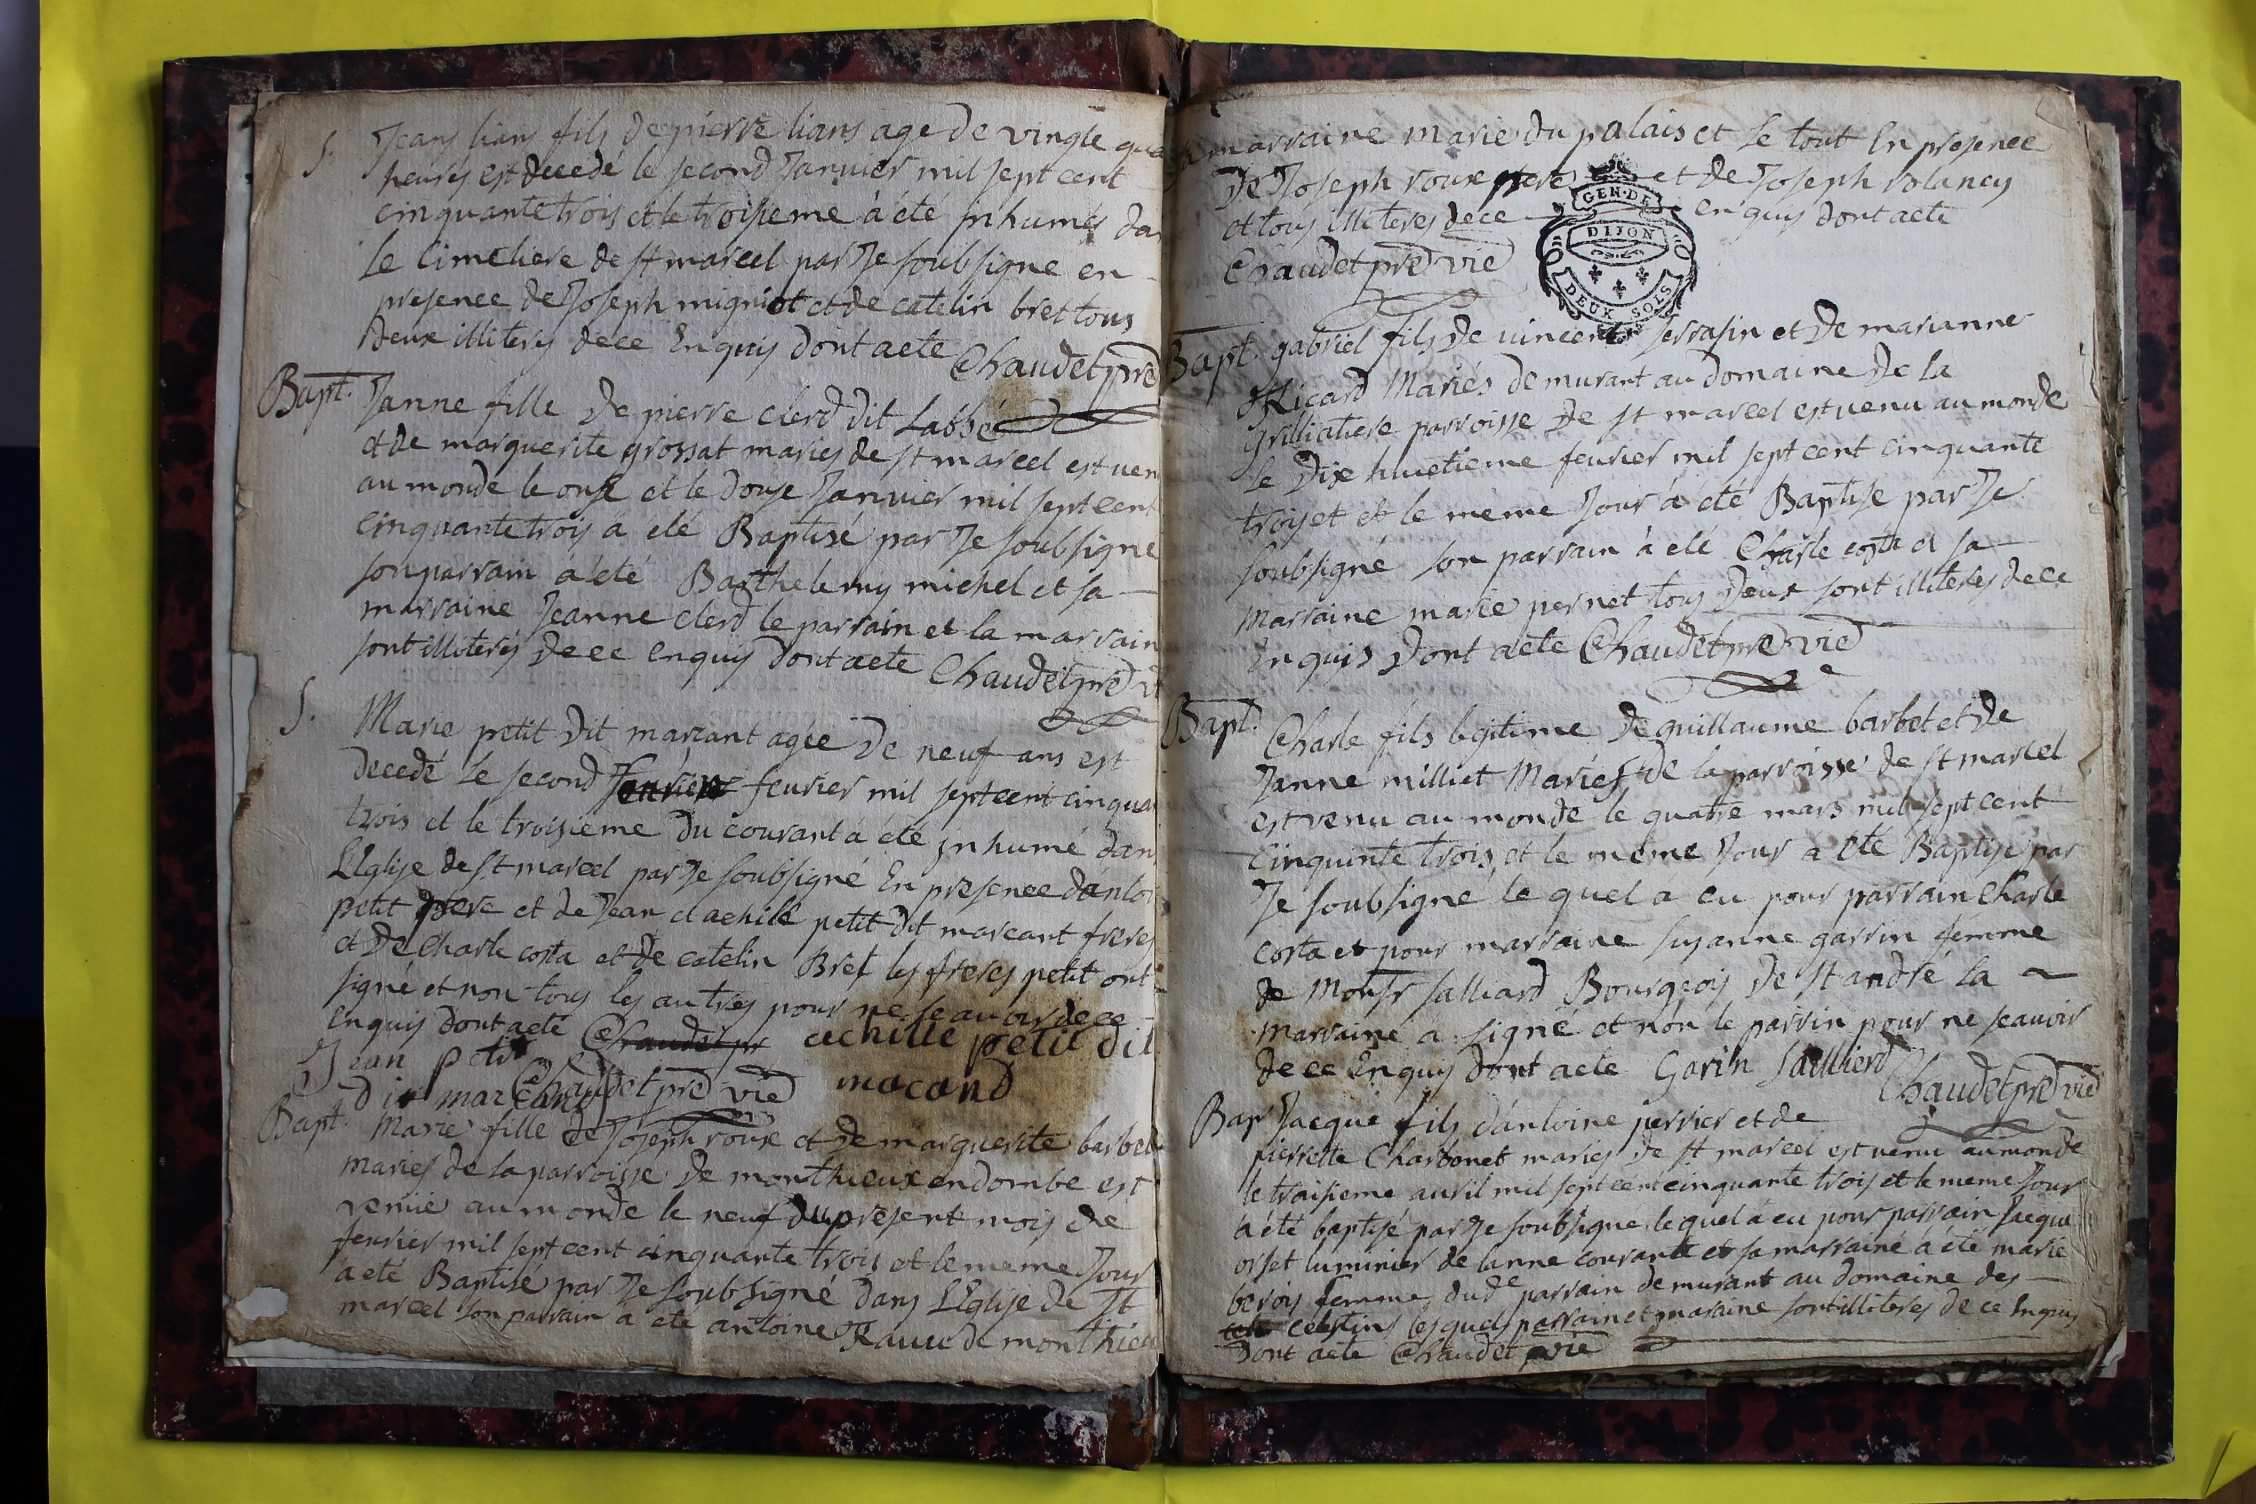 S. Jean lians fils de pierre lians age de vingte qua
heures est decedé le second Janvier mil sept cent
cinquante trois et le troisieme à été inhumés da
le cimetiere de st marcel par Je soubsigne en
presence de Joseph migniot et de catelin bret tous
deux illiterés de ce Enquis dont acte Chaudet pre
Bapt. Janne fille de pierre clerd dit Labbé
et de marguerite grossat mariés de st marcel est ven
au monde le onse et le douse Janvier mil sept cent
cinquante trois à été Baptisé par Je soubsigne
son parrain à été Barthelemy michel et sa
marraine Jeanne clerd le parrain et la marrain
sont illiterés de ce enquis dont acte Chaudet pre v
S. Marie petit dit marcant agée de neuf ans est
decedé le second fevrier mil sept cent cinqua
trois et le troisieme du courant à été inhumé dan
L'Eglise de st marcel par Je soubsigné En presence d'antoi
petit pere et de Jean et achile petit dit marcant freres
et de Charle costa et de catelin Bret les freres petit ont
signé et non tous les autres pour ne sçavoir de ce
enquis dont acte Chaudet pr achille petit dit
macand
Jean petit
dit marcand Chaudet pre vic
Bapt. Marie fille de Joseph roux et de marguerite barbet
mariés de la parroisse de monthieux en dombe est
venüe au monde le neuf du present mois de
fevrier mil sept cent cinquante trois et le meme Jour
a été Baptisé par Je soubsigné dans L'Eglise de st
marcel son parrain à été antoine Ravu de monthieu
sa marraine marie du palais et le tout En presence
de Joseph roux pere et de Joseph volancy
et tous illiterés de ce enquis dont acte
GEN. DE
DIJON
DEUX SOLS
Chaudet pre vic
Bapt. gabriel fils de vincent serrasin et de marianne
Ricard Mariés demurant au domaine de la
grilliatiere parroisse de st marcel est venu au monde
le dix huetieme fevrier mil sept cent cinquante
trois et et le meme Jour à été Baptise par Je
soubsigné son parrain à été Charle costa et sa
marraine marie pernet tous deux sont illiterés de ce
enquis dont acte Chaudet pre vic
Bapt. Charle fils legitime de guillaume barbet et de
Janne milliet Mariés de la parroisse de st marcel
est venu au monde le quatre mars mil sept cent
cinquinte trois et le meme Jour a été Baptisé par
Je soubsigné le quel à eu pour parrain Charle
costa et pour marraine susanne garrin femme
de Monsr salliard Bourgeois de st andré la
marraine a signé et non le parrin pour ne sçavoir
de ce Enquis dont acte Garin Saillierd
Chaudet pre vic
Bap Jacque fils d'antoine perrier et de
pierrette Charbonet mariés de st marcel est venu au monde
le troisieme avril mil sept cent cinquante trois et le meme Jour
à été baptisé par Je soubsigné le quel à eu pour parrain Jacque
orset luminier de lanne courante et sa marraine à été marie
berois femme dudt parrain demurant au domaine des
celestins lesquels parrain et maraine sont illiterés de ce Enquis
dont acte Chaudet vic